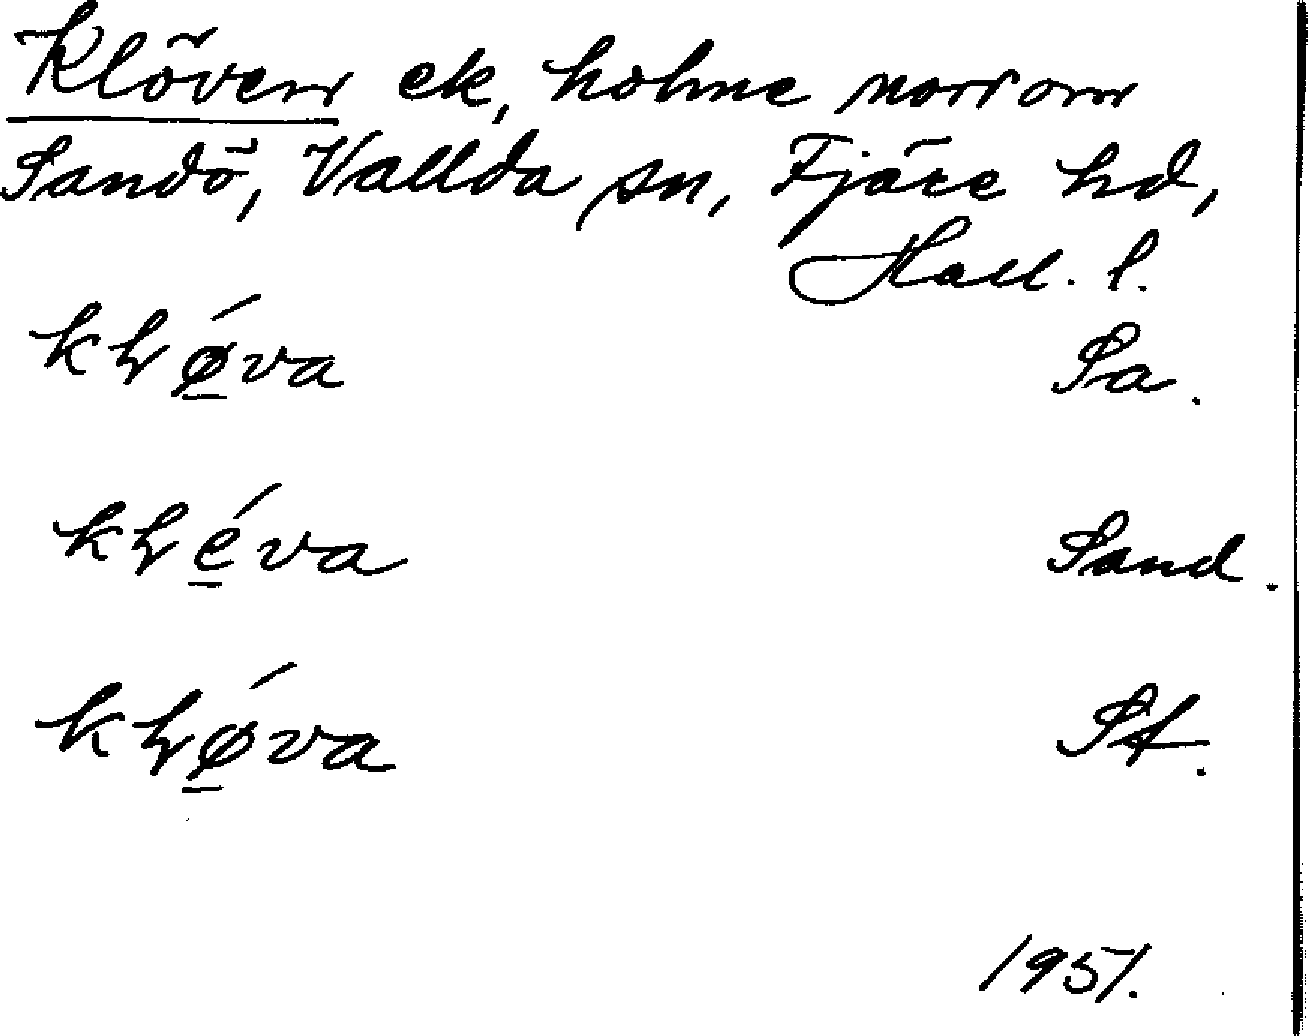 Klöven ek, holme norr om
Sandö, Vallda sn, Fjäre hd,
Hall. l.
kḷǿ̲va Sa.
kḷé̲va Sand.
kḷǿ̲va St.
1951.